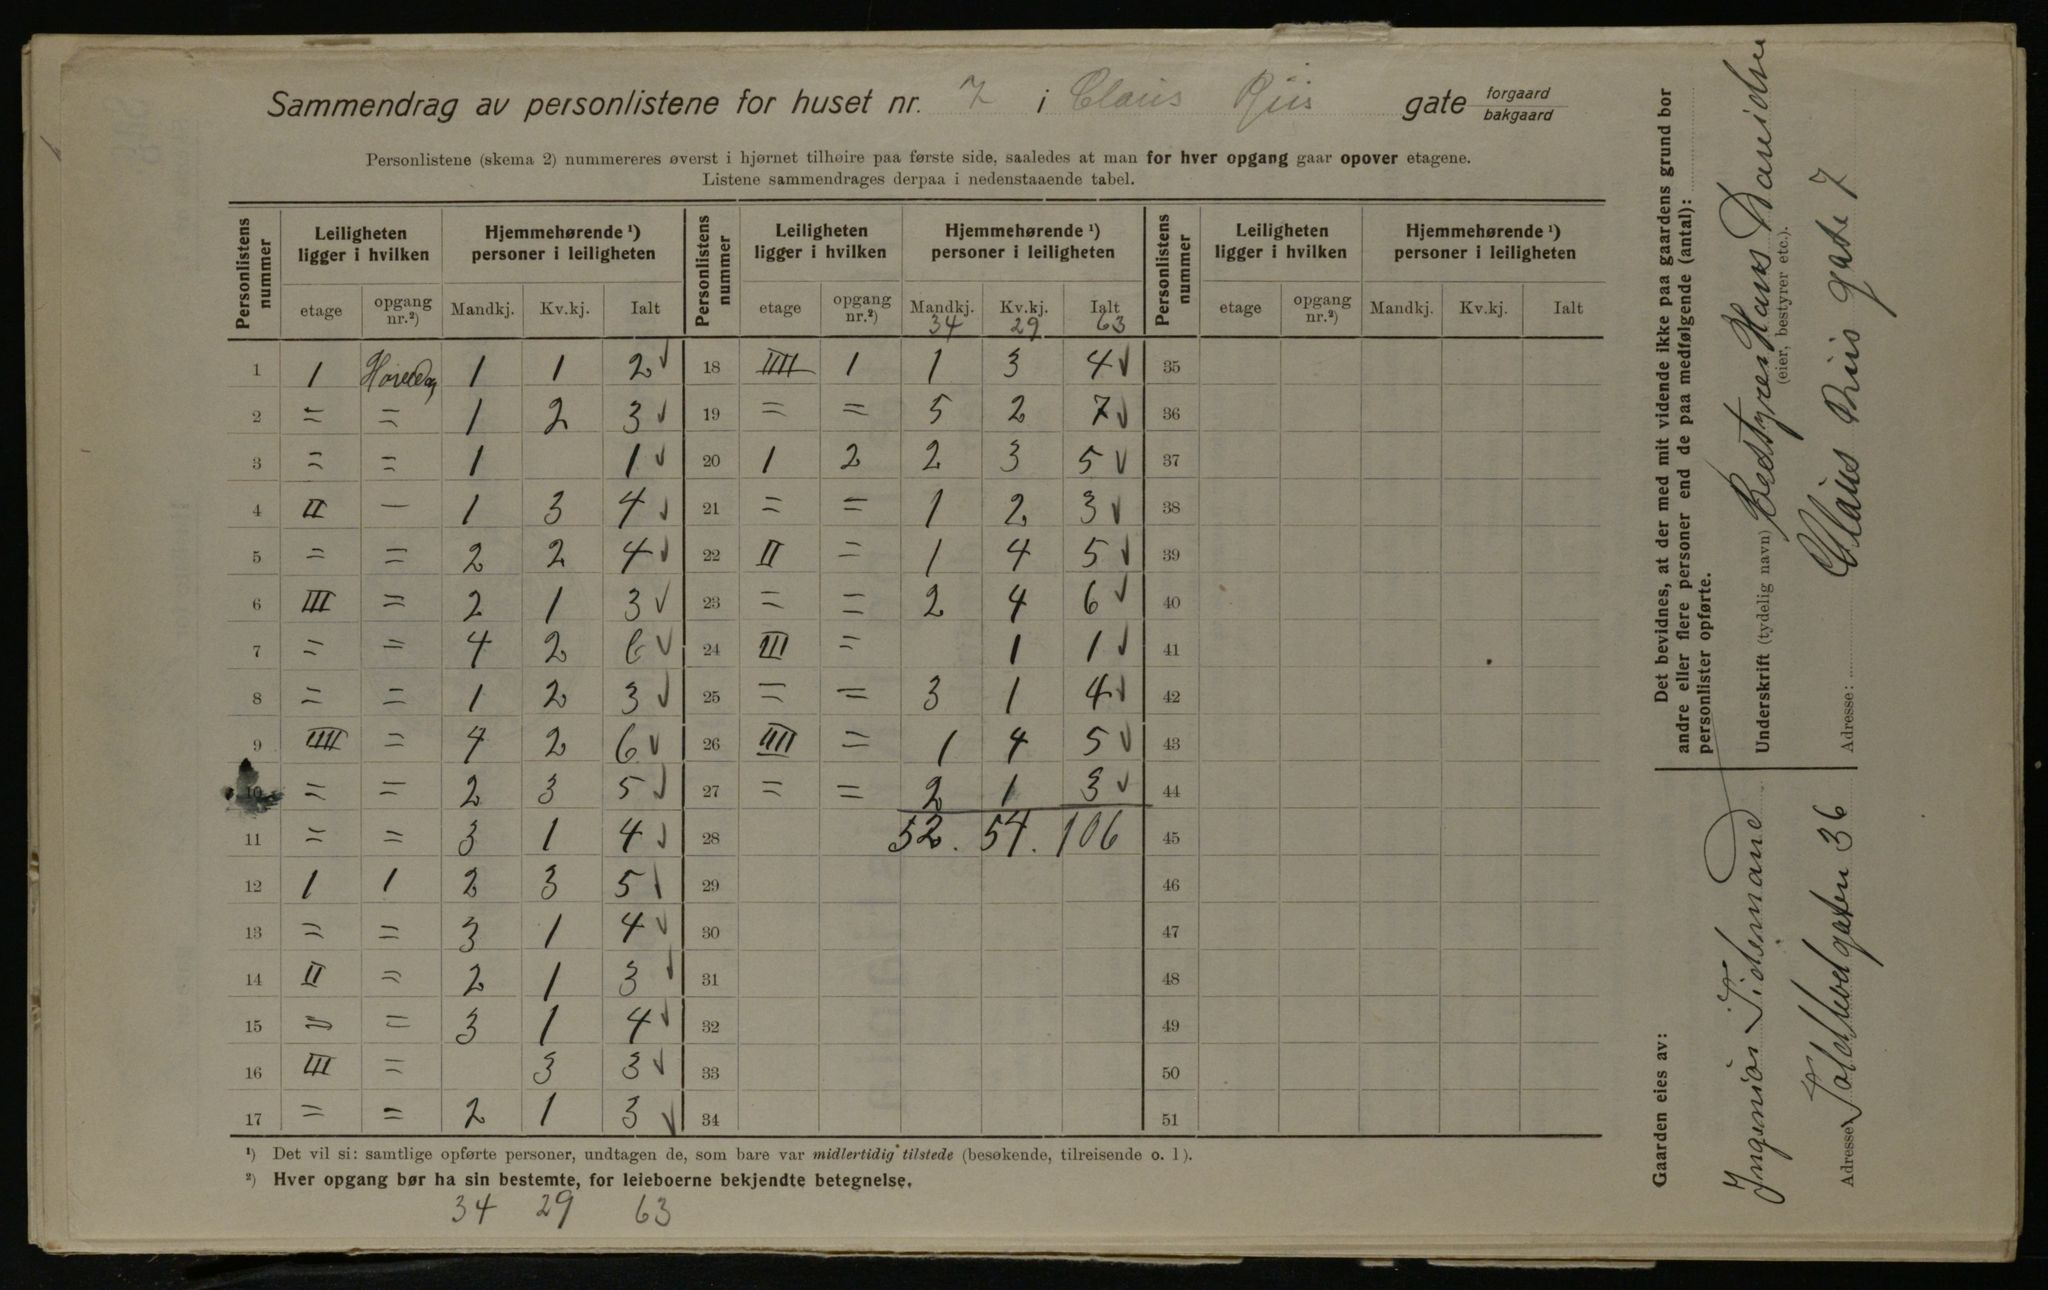 Sammendrag av personlistene for huset nr. 7 i Claus Riis gate forgaard bakgaard
Personlistene (skema 2) nummereres øverst i hjørnet tilhøire paa første side, saaledes at man for hver opgang gaar opover etagene.
Listene sammendrages derpaa i nedenstaaende tabel.
Personlistens nummer | Leiligheten ligger i hvilken | Hjemmehørende ¹) personer i leiligheten | Personlistens nummer | Leiligheten ligger i hvilken | Hjemmehørende ¹) personer i leiligheten | Personlistens nummer | Leiligheten ligger i hvilken | Hjemmehørende ¹) personer i leiligheten
etage | opgang nr.²) | Mandkj. | Kv.kj. | Ialt | etage | opgang nr.²) | Mandkj. | Kv.kj. | Ialt | etage | opgang nr.²) | Mandkj. | Kv.kj. | Ialt
34 29 63
1 | 1 | | 1 | 1 | 2 ✓ | 18 | IIII | 1 | 1 | 3 | 4 ✓ | 35
2 | = | = | 1 | 2 | 3 ✓ | 19 | = | = | 5 | 2 | 7 ✓ | 36
3 | = | = | 1 | | 1 ✓ | 20 | 1 | 2 | 2 | 3 | 5 ✓ | 37
4 | II | — | 1 | 3 | 4 ✓ | 21 | = | = | 1 | 2 | 3 ✓ | 38
5 | = | = | 2 | 2 | 4 ✓ | 22 | II | = | 1 | 4 | 5 ✓ | 39
6 | III | = | 2 | 1 | 3 ✓ | 23 | = | = | 2 | 4 | 6 ✓ | 40
7 | = | = | 4 | 2 | 6 ✓ | 24 | III | = | | 1 | 1 ✓ | 41
8 | = | = | 1 | 2 | 3 ✓ | 25 | = | = | 3 | 1 | 4 ✓ | 42
9 | IIII | = | 4 | 2 | 6 ✓ | 26 | IIII | = | 1 | 4 | 5 ✓ | 43
10 | = | = | 2 | 3 | 5 ✓ | 27 | = | = | 2 | 1 | 3 ✓ | 44
11 | = | = | 3 | 1 | 4 ✓ | 28 | | | 52. | 54. | 106 | 45
12 | 1 | 1 | 2 | 3 | 5 ✓ | 29 | 46
13 | = | = | 3 | 1 | 4 ✓ | 30 | 47
14 | II | = | 2 | 1 | 3 ✓ | 31 | 48
15 | = | = | 3 | 1 | 4 ✓ | 32 | 49
16 | III | = | | 3 | 3 ✓ | 33 | 50
17 | = | = | 2 | 1 | 3 ✓ | 34 | 51
¹) Det vil si: samtlige opførte personer, undtagen de, som bare var midlertidig tilstede (besøkende, tilreisende o. l).
²) Hver opgang bør ha sin bestemte, for leieboerne bekjendte betegnelse.
34 29 63
Det bevidnes, at der med mit vidende ikke paa gaardens grund bor
andre eller flere personer end de paa medfølgende (antal):
personlister opførte.
Underskrift (tydelig navn) Bestyrer Hans Danielsen
(eier, bestyrer etc.).
Adresse: Claus Riis gate 7
Gaarden eies av:
Ingeniør Tidemand
Adresse Toldbodgaten 36